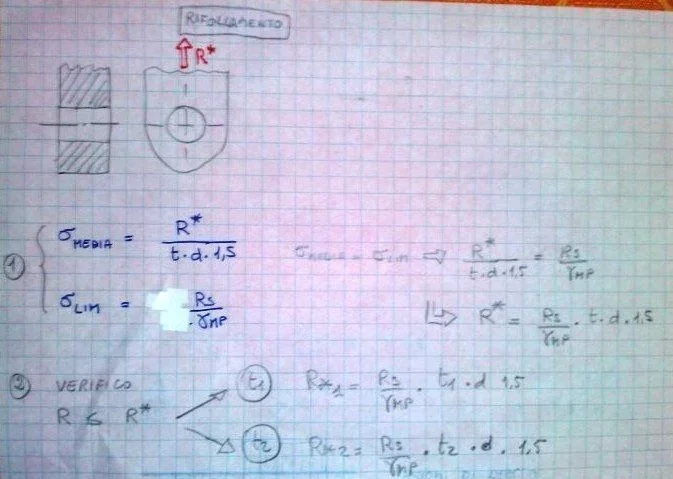 RIFOLLAMENTO
R*
① σ_MEDIA = R* / t·d·1,5
σ_MEDIA = σ_LIM ⇒ R* / t·d·1,5 = Rs / γMP
σ_LIM = Rs / γMP
⇒ R* = Rs / γMP · t·d·1,5
② VERIFICO
R ≤ R*
t1 R*1 = Rs / γMP · t1 · d 1,5
t2 R*2 = Rs / γMP · t2 · d · 1,5